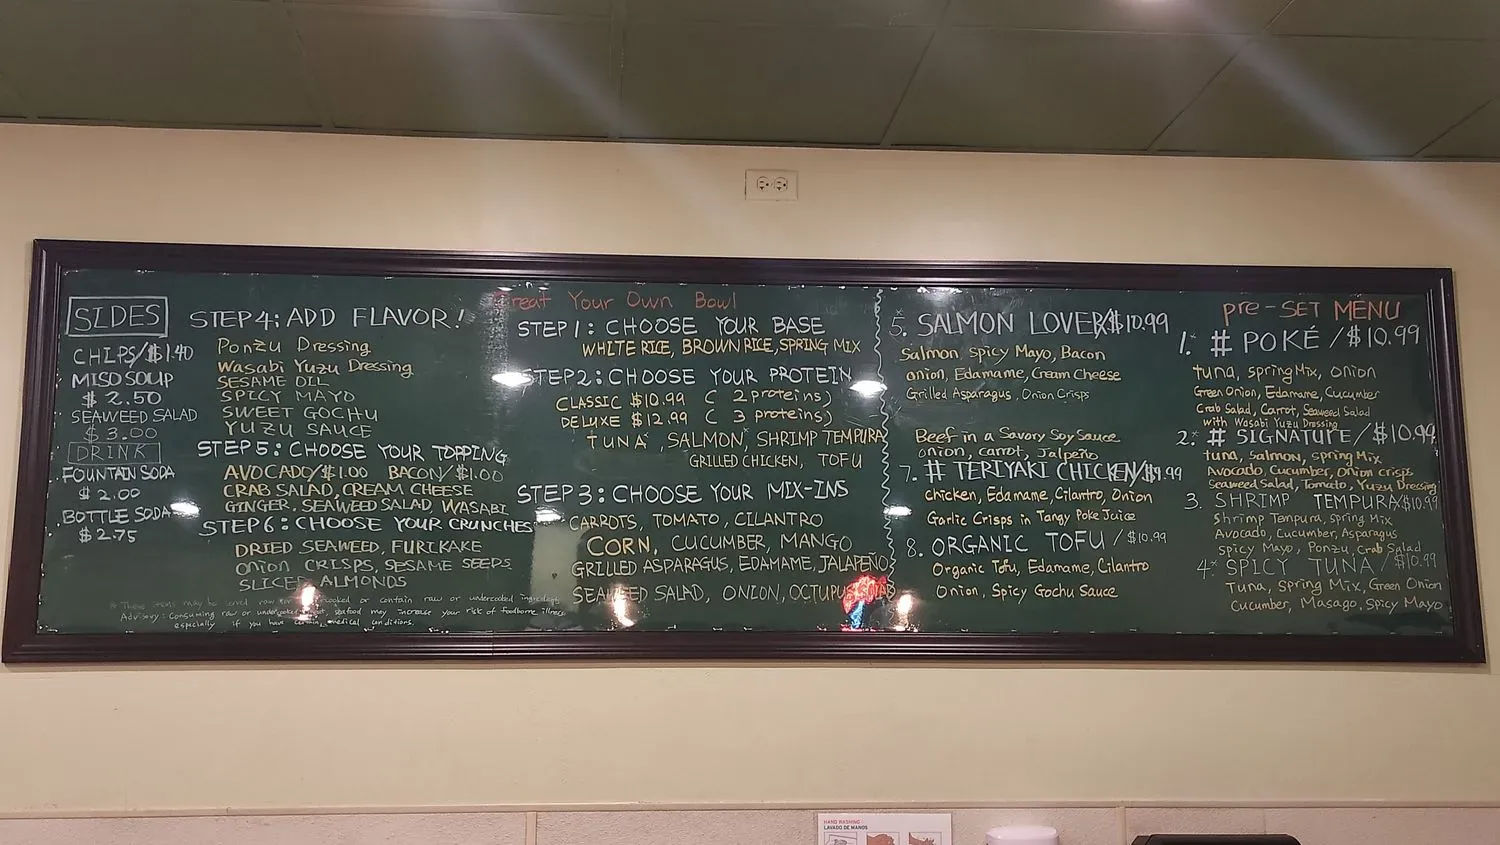 SIDES
CHIPS/$1.40
MISO SOUP
$2.50
SEAWEED SALAD
$3.00
DRINK
FOUNTAIN SODA
$2.00
BOTTLE SODA
$2.75
STEP 4: ADD FLAVOR!
Ponzu Dressing
Wasabi Yuzu Dressing
SESAME OIL
SPICY MAYO
SWEET GOCHU
YUZU SAUCE
STEP 5: CHOOSE YOUR TOPPING
AVOCADO/$1.00 BACON/$1.00
CRAB SALAD, CREAM CHEESE
GINGER, SEAWEED SALAD, WASABI
STEP 6: CHOOSE YOUR CRUNCHES
DRIED SEAWEED, FURIKAKE
ONION CRISPS, SESAME SEEDS
SLICED ALMONDS
* These items may be served raw or cooked or contain raw or undercooked ingredients
Advisory: Consuming raw or seafood may increase your risk of foodborne illness
especially if you have certain medical conditions.
Creat Your Own Bowl
STEP 1: CHOOSE YOUR BASE
WHITE RICE, BROWN RICE, SPRING MIX
STEP 2: CHOOSE YOUR PROTEIN
CLASSIC $10.99 ( 2 proteins)
DELUXE $12.99 ( 3 proteins)
TUNA*, SALMON*, SHRIMP TEMPURA
GRILLED CHICKEN, TOFU
STEP 3: CHOOSE YOUR MIX-INS
CARROTS, TOMATO, CILANTRO
CORN, CUCUMBER, MANGO
GRILLED ASPARAGUS, EDAMAME, JALAPEÑO
SEAWEED SALAD, ONION, OCTUPUS
5.* SALMON LOVER/$10.99
Salmon Spicy Mayo, Bacon
Onion, Edamame, Cream Cheese
Grilled Asparagus, Onion Crisps
Beef in a Savory Soy Sauce
Onion, carrot, Jalpeño
7. # TERIYAKI CHICKEN/$9.99
Chicken, Edamame, Cilantro, Onion
Garlic Crisps in Tangy Poke Juice
8. ORGANIC TOFU/$10.99
Organic Tofu, Edamame, Cilantro
Onion, Spicy Gochu Sauce
pre-SET MENU
1.* # POKÉ /$10.99
tuna, spring Mix, onion
Green Onion, Edamame, Cucumber
Crab Salad, Carrot, Seaweed Salad
with Wasabi Yuzu Dressing
2.* # SIGNATURE/$10.99
tuna, Salmon, spring Mix
Avocado, Cucumber, Onion crisps
Seaweed Salad, Tomato, Yuzu Dressing
3. SHRIMP TEMPURA/$10.99
Shrimp Tempura, spring Mix
Avocado, Cucumber, Asparagus
Spicy Mayo, Ponzu, Crab Salad
4.* SPICY TUNA/$10.99
Tuna, Spring Mix, Green Onion
Cucumber, Masago, Spicy Mayo
HAND WASHING
LAVADO DE MANOS